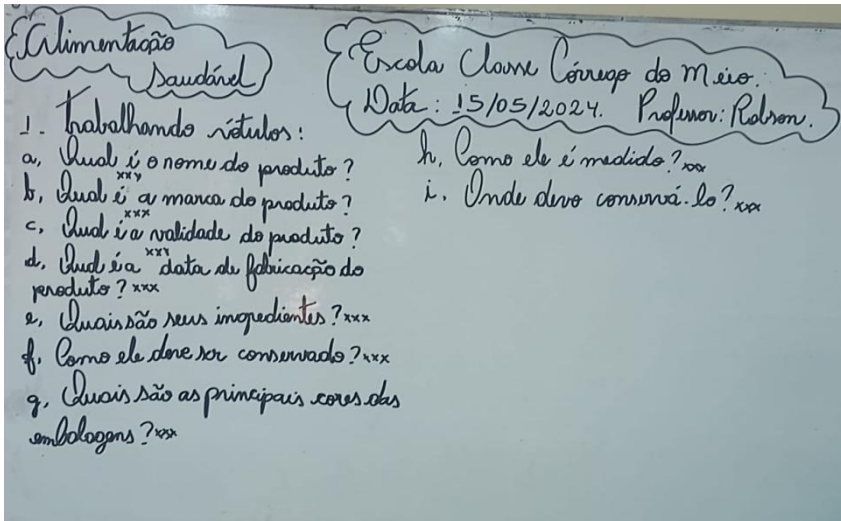 Alimentação
Saudável
1. Trabalhando rótulos:
a, Qual é o nome do produto?
xxx
b, Qual é a marca do produto?
xxx
c, Qual é a validade do produto?
xxx
d, Qual é a data de fabricação do
produto? xxx
e, Quais são seus ingredientes? xxx
f, Como ele deve ser conservado? xxx
g, Quais são as principais cores das
embalagens? xxx
Escola Classe Córrego do Meio.
Data: 15/05/2024. Professor: Robson.
h, Como ele é medido? xxx
i, Onde devo conservá-lo? xxx